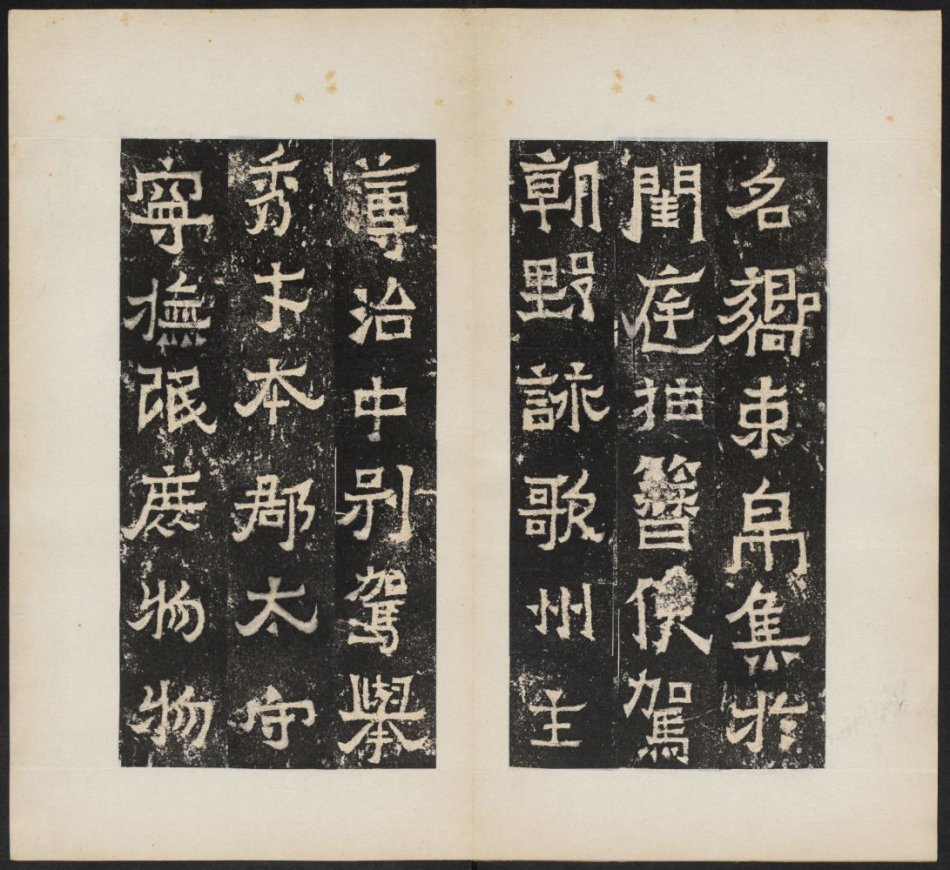 名嚮束帛集於
閨庭抽簪便駕
朝野詠歌州主
薄治中別駕舉
秀才本郡太守
寧撫氓庶物物